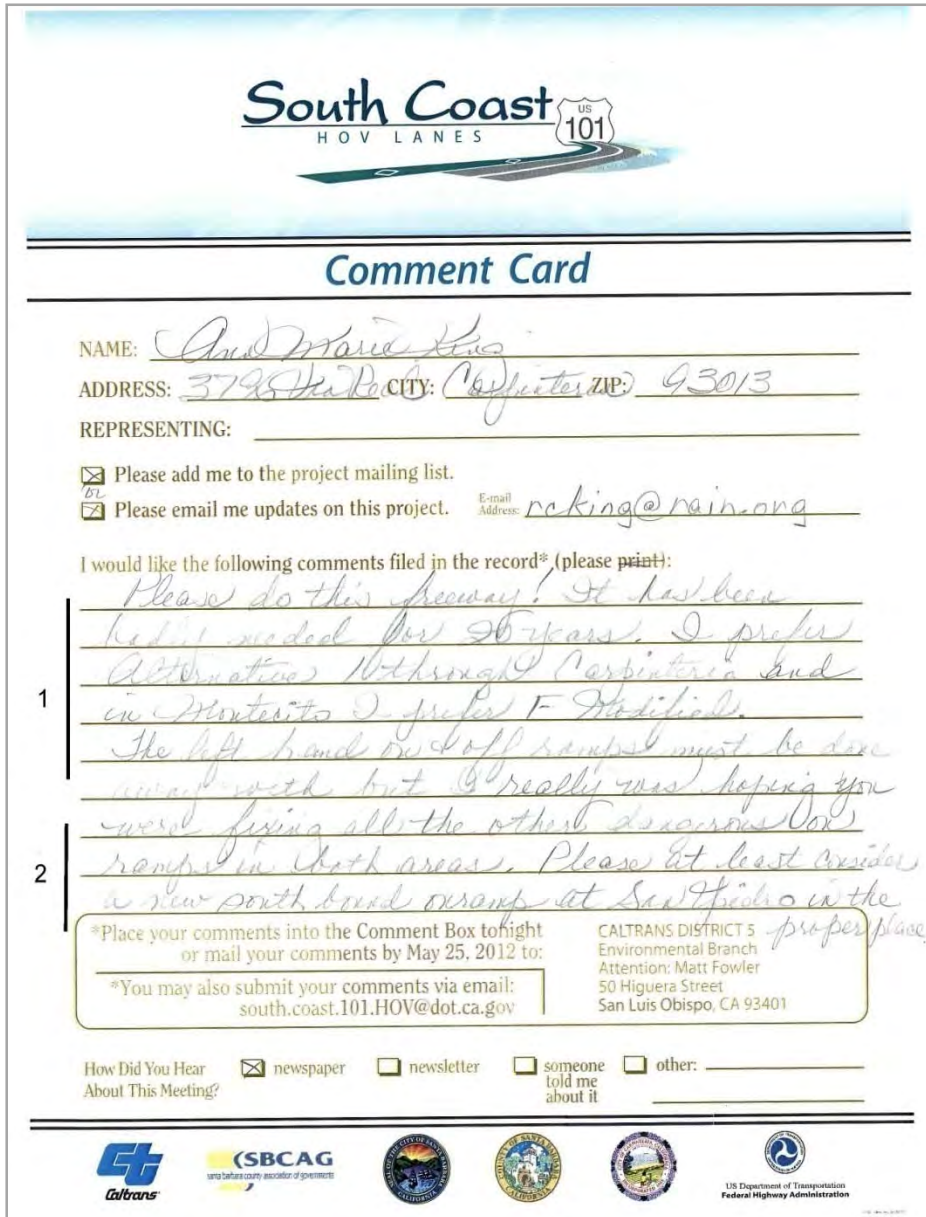 South Coast
US
101
HOV LANES
Comment Card
NAME: Ann Marie King
ADDRESS: Via Real CITY: Carpinteria ZIP: 93013
REPRESENTING:
Please add me to the project mailing list.
or
Please email me updates on this project. E-mail Address: rcking@rain.org
I would like the following comments filed in the record* (please print):
Please do this freeway! It has been
badly needed for years. I prefer
Alternative 1 through Carpinteria and
in Montecito I prefer F Modified.
1
The left hand on & off ramps must be done
away with but I really was hoping you
were fixing all the other dangerous on
ramps in both areas. Please at least consider
2
a new south bound onramp at San Ysidro in the
proper place
*Place your comments into the Comment Box tonight
or mail your comments by May 25, 2012 to:
*You may also submit your comments via email:
south.coast.101.HOV@dot.ca.gov
CALTRANS DISTRICT 5
Environmental Branch
Attention: Matt Fowler
50 Higuera Street
San Luis Obispo, CA 93401
How Did You Hear
About This Meeting?
newspaper
newsletter
someone
told me
about it
other:
Caltrans
SBCAG
santa barbara county association of governments
US Department of Transportation
Federal Highway Administration